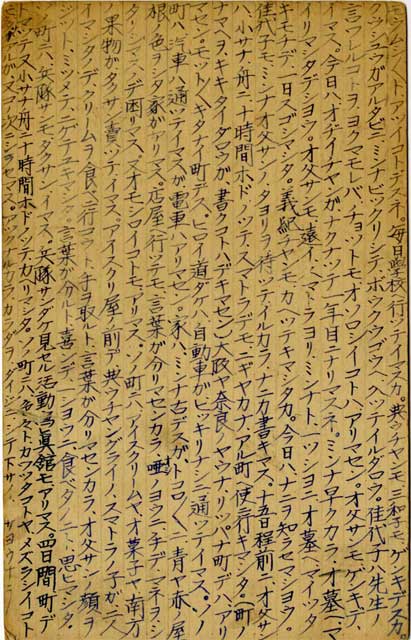 ムシムシトアツイコトデスネ。毎日學校ヘ行ツテイマスカ。典ツチヤンモ三和子モゲンキデスカ
シュウガアルタビニミンナビックリシテボウクウゴウヘハイツテイルダロウ。佳代子ハ先生
言フコトヲヨクマモレバ、チョットモオソロシイコトハアリマセン。オ父サンモゲンキデ、
イマス。今日ハオヂイチャンガナクナツテ一年目ニナリマスネ。ミンナ早クカラオ墓ヘマ
イリマシタデショウ。オ父サンモ遠イスマトラヨリ、ミンナト一ツショニオ墓ヘマイツタ
キモチデ一日スゴシマシタ。義紀チヤンモカヘツテキマシタカ。今日ハナニヲ知ラセマショウ。
佳代子モミンナオ父サンノタヨリヲ待ツテイルカラナニカ書キマス。十五日程前ニオ父サン
ハ小サナ舟ニ十時間ホドノツテ、スマトラデモニギヤカナ、アル町ヘ使ニ行キマシタ。町ノ
ナマヘヲキキタイダロウガ書クコトハデキマセン。大阪ヤ奈良ノヤウナリッパナ町デハアリ
マセン。モットキタナイ町デス。ヒロイ道ダケハ自動車ガヒッキリナシニ通ツテイマス。ソノ
町ハ汽車ハ通ツテイマスガ電車ハアリマセン。家ハミンナ古デスガトコロ〲ニ青ヤ赤ノ屋
根ノ色ヲシタ家ガアリマス。店屋ヘ行ツテモ、言葉ガ分リマセンカラ唖ノヨウニ手デマネヲシ
タリシテ困リマス。マオモシロイコトモアリマス。ソノ町ニハアイスクリームヤオ菓子ヤ南方
果物ガタクサン賣ツテイマス。アイスクリーム屋ノ前デ典ツチヤングライノ、スマトラノ子ガ二人
イマシタノデクリームヲ食ベニ行コウト手ヲ取ルト、言葉ガ分リマセンカラ、オ父サンノ顔ヲ
ジット、ミツメテ、ニゲテユキマシタ。言葉ガ分ルト喜ンデ一ショウニ食ベタノニト思ヒマシタ。
町ニハ兵隊サンモタクサンイマス。兵隊サンダケ見セル活動寫眞館モアリマス。四日間町デ
又小サナ舟ニ十時間ホドノツテカヘリマシタ。ソノ町ニハ色々トカワツタコトヤメズラシイコト
ガ又コノ次ニシラセマス。カラダヲダイジニシテ下サイ。サヨウナラ